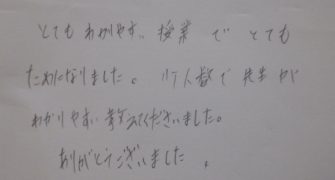 とてもわかりやすい授業でとても
ためになりました。少人数で先生が
わかりやすい教えてくださいました。
ありがとうございました。